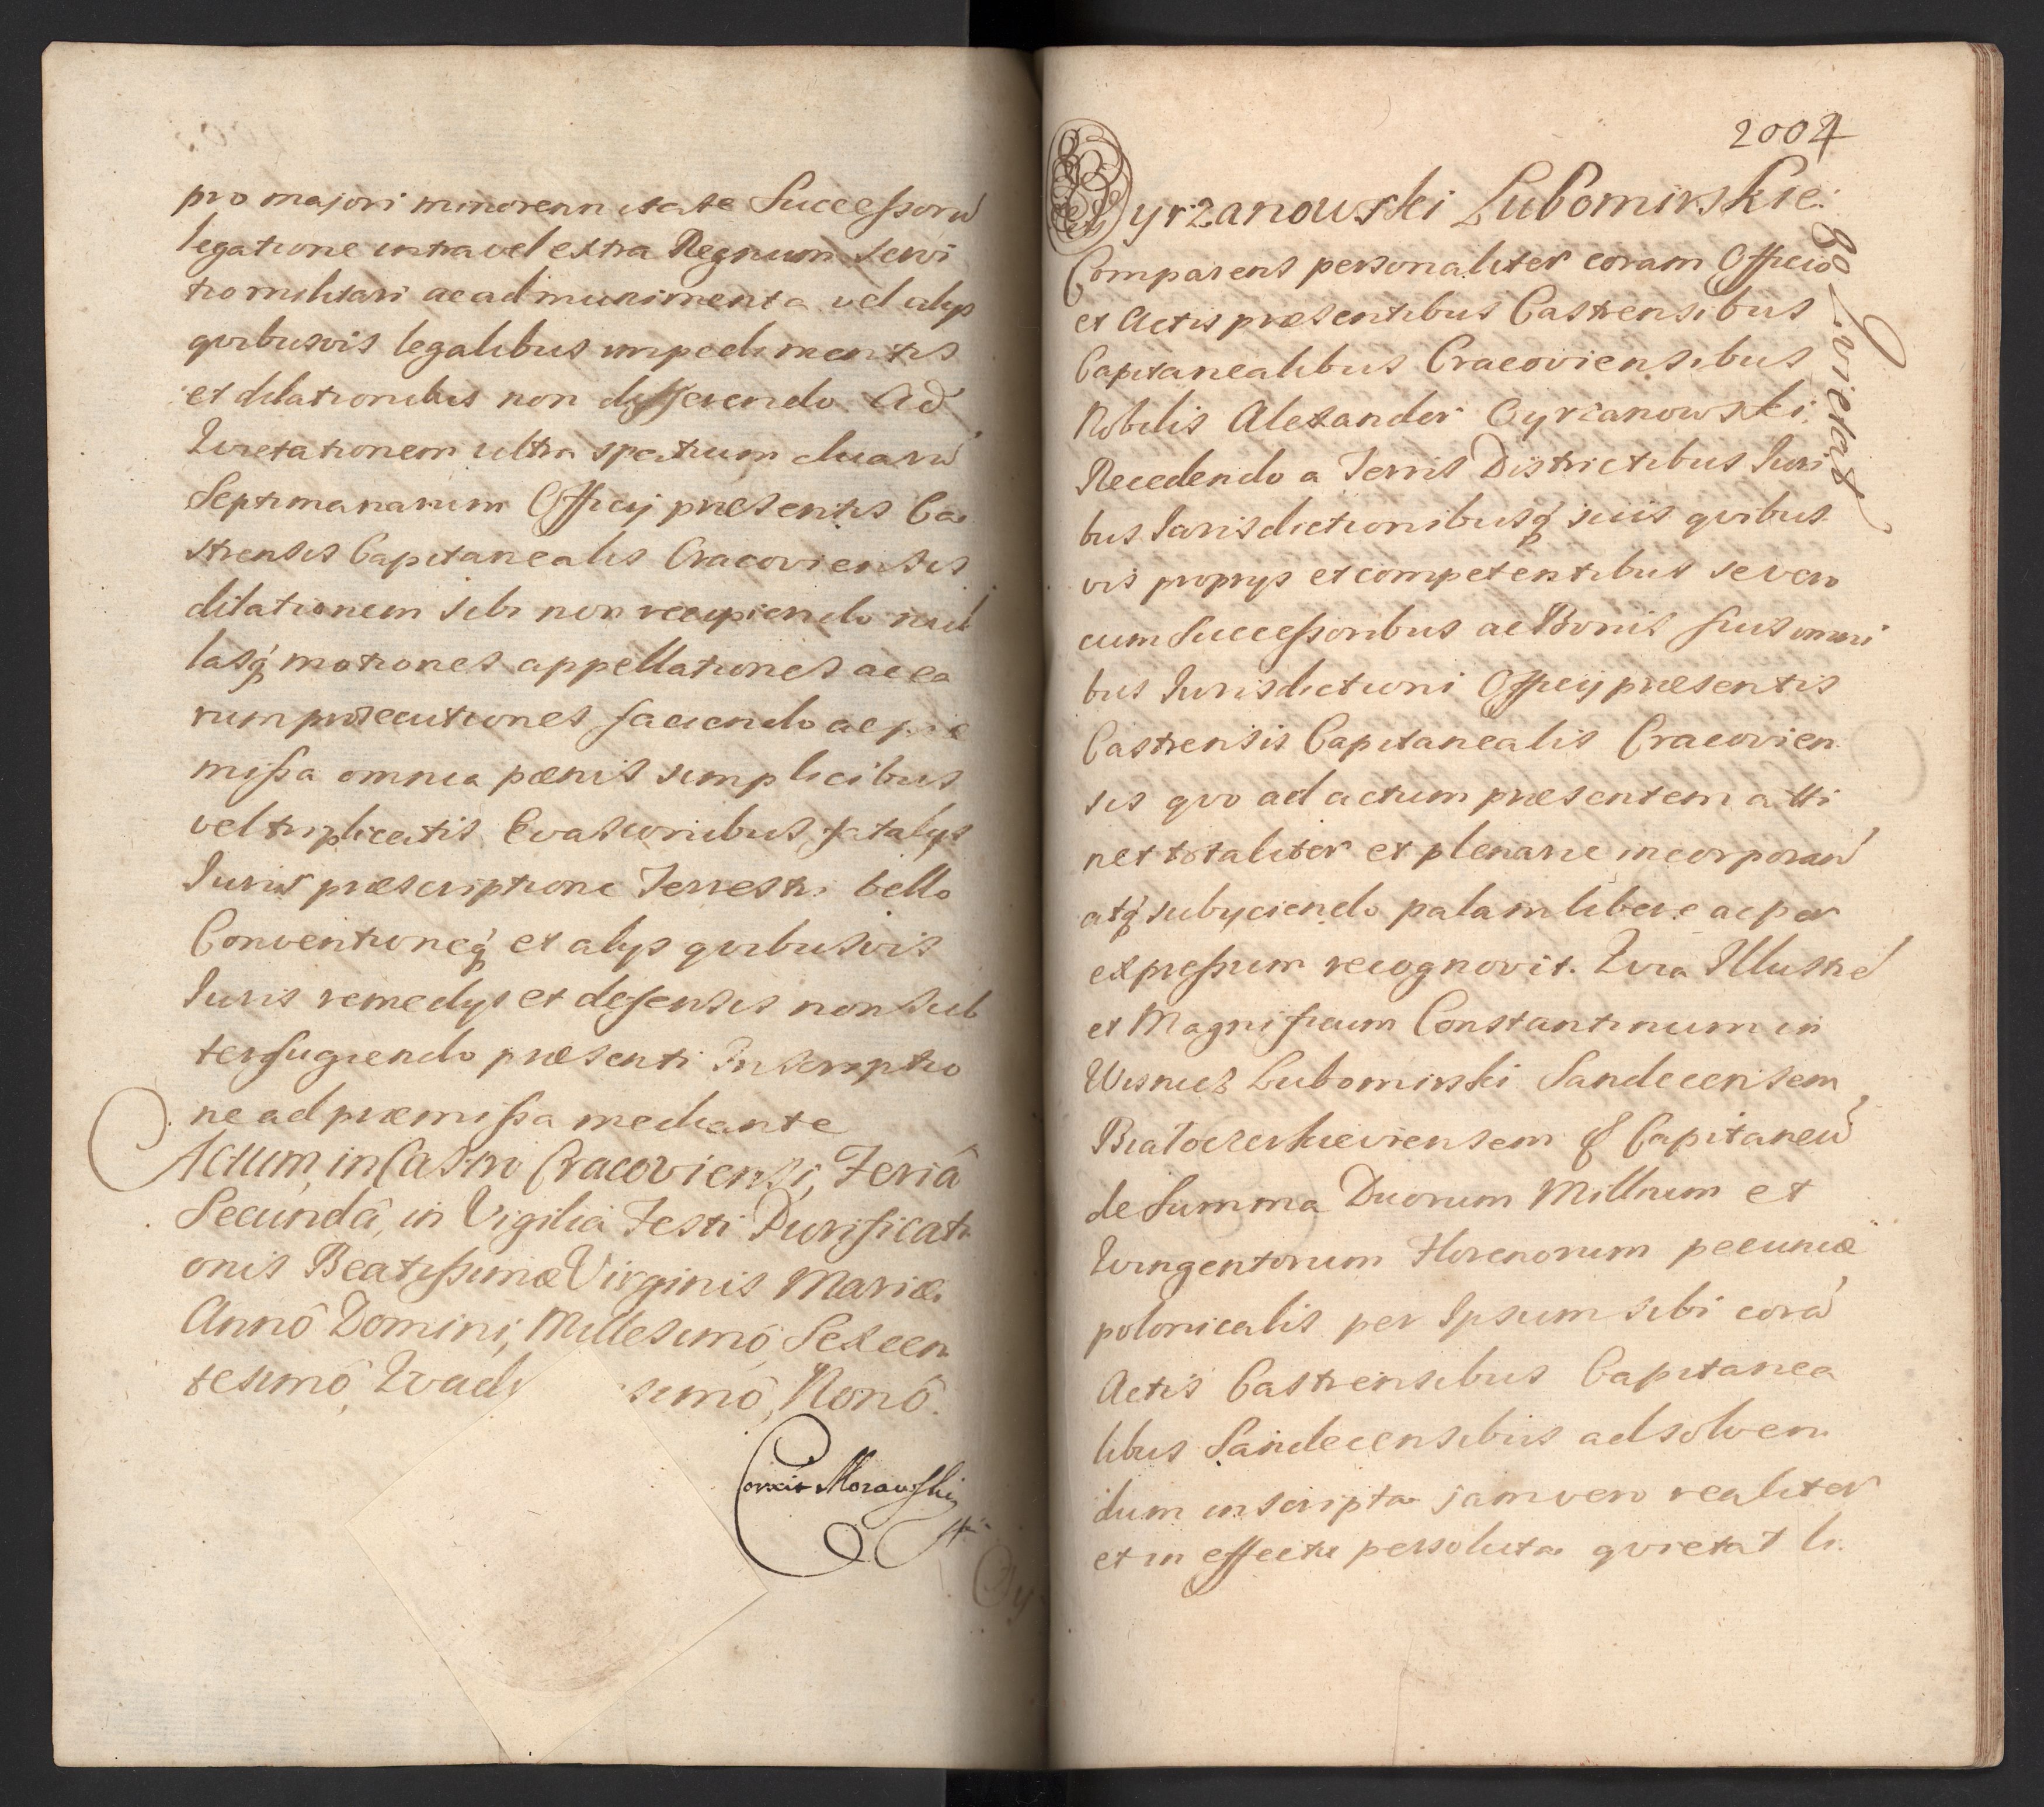 pro majori minorennitate Successorũ
legatione intra vel extra Regnum servi
tio militari ac ad munimenta vel alijs
qvibusvis legalibus impedimentis
et dilationibus non differendo. Ad
Qvietationem ultra spatium duarũ
Septimanarum Officij præsentis Ca
strensis Capitanealis Cracoviensis
dilationem sibi non recipiendo nul
lasq́ motiones appellationes ac ea
rum prosecutiones faciendo ac præ
missa omnia pænis simplicibus
vel triplicatis Evasionibus fatalijs
Iuris præscriptione Terrestri bello
Conventioneq́ et alijs qvibusvis
Iuris remedijs et defensis non sub
terfugiendo præsenti Inscriptio
ne ad præmissa mediante
Actum, in Castro Cracoviensi, Feriâ
Secundâ, in Vigilia Festi Purificati
onis Beatissimæ Virginis Mariæ.
Annô Domini, Millesimô, Sexcen
tesimô, Qvadr simô, Nonô.
Correxit Morawski
Cy
2004
Cyrzanowski Lubomirskie.
Qvietat
Comparens personaliter coram Officio
et Actis præsentibus Castrensibus
Capitanealibus Cracoviensibus
Nobilis Alexander Cyrzanowski.
Recedendo a Terris Districtibus Iuri
bus Iurisdictionibusq́ suis qvibus
vis proprijs et competentibus se vero
cum Successoribus ac Bonis suis omni
bus Iurisdictioni Officij præsentis
Castrensis Capitanealis Cracovien
sis qvo ad actum præsentem atti
net totaliter et plenarie incorporañ
atq́ subijciendo palam libere ac per
expressum recognovit. Qvia Illustrẽ
et Magnificum Constantinum in
Wisnicz Lubomirski Sandecensem
Białocerkieviensem & Capitaneũ
de Summa Duorum Millium et
Qvingentorum Florenorum pecuniæ
polonicalis per Ipsum sibi corã
Actis Castrensibus Capitanea
libus Sandecensibus ad solven
dum inscripta jam vero realiter
et in effectu persoluta qvietat li